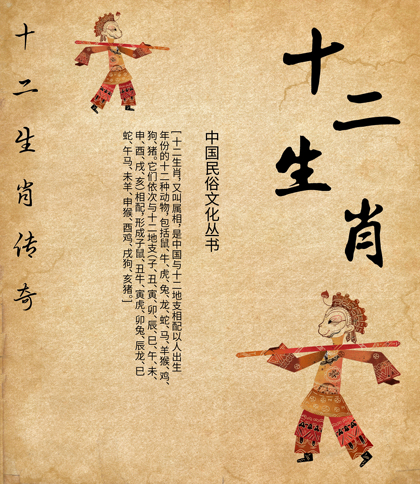 十二生肖
中国民俗文化丛书
[十二生肖,又叫属相,是中国与十二地支相配以人出生
年份的十二种动物,包括鼠、牛、虎、兔、龙、蛇、马、羊猴、鸡、
狗、猪。它们依次与十二地支(子、丑、寅、卯、辰、巳、午、未、
申、酉、戌、亥)相配,形成子鼠、丑牛、寅虎、卯兔、辰龙、巳
蛇、午马、未羊、申猴、酉鸡、戌狗、亥猪。]
十二生肖传奇